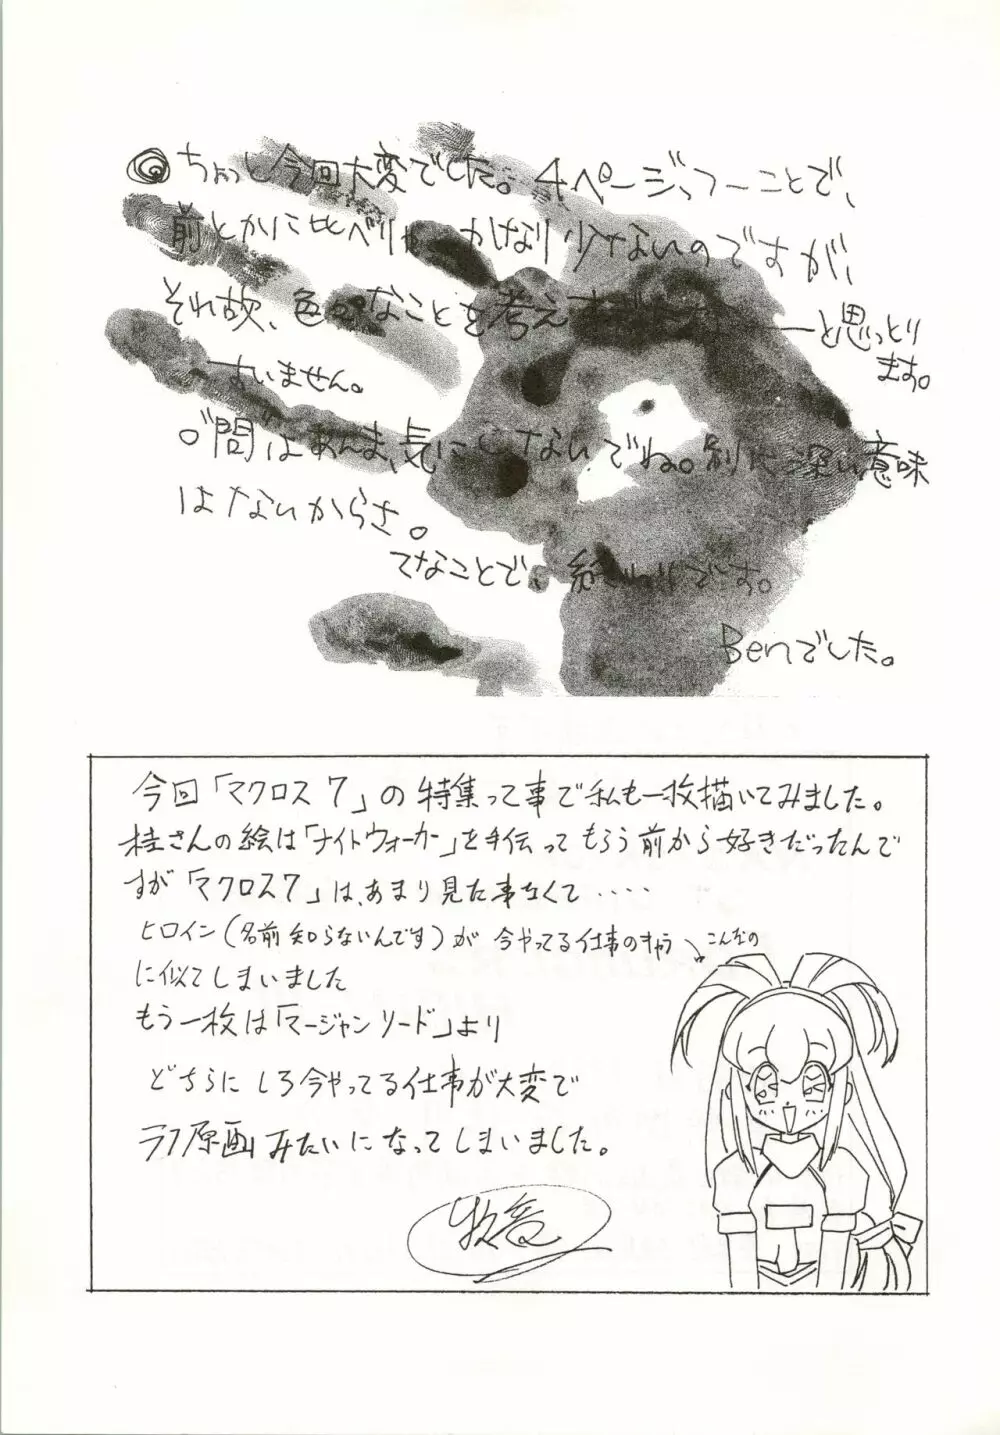 ちょっし今回大変でした。4ページっつーことで、
前とかに比べりゃ かなり少ないのですが、
それ故、色々なことを考え
ーと思っとり
ます。
すいません。
。"問"はあんま、気にしないでね。別に深い意味
はないからさ。
てなことで、終わりです。
Benでした。
今回「マクロス7」の特集って事で私も一枚描いてみました。
桂さんの絵は「ナイトウォーカー」を手伝ってもらう前から好きだったんで
すが「マクロス7」は、あまり見た事なくて‥‥
ヒロイン(名前知らないんです)が 今やってる仕事のキャラ
こんなの
に似てしまいました
もう一枚は「マージャンリード」より
どちらにしろ今やってる仕事が大変で
ラフ原画みたいになってしまいました。